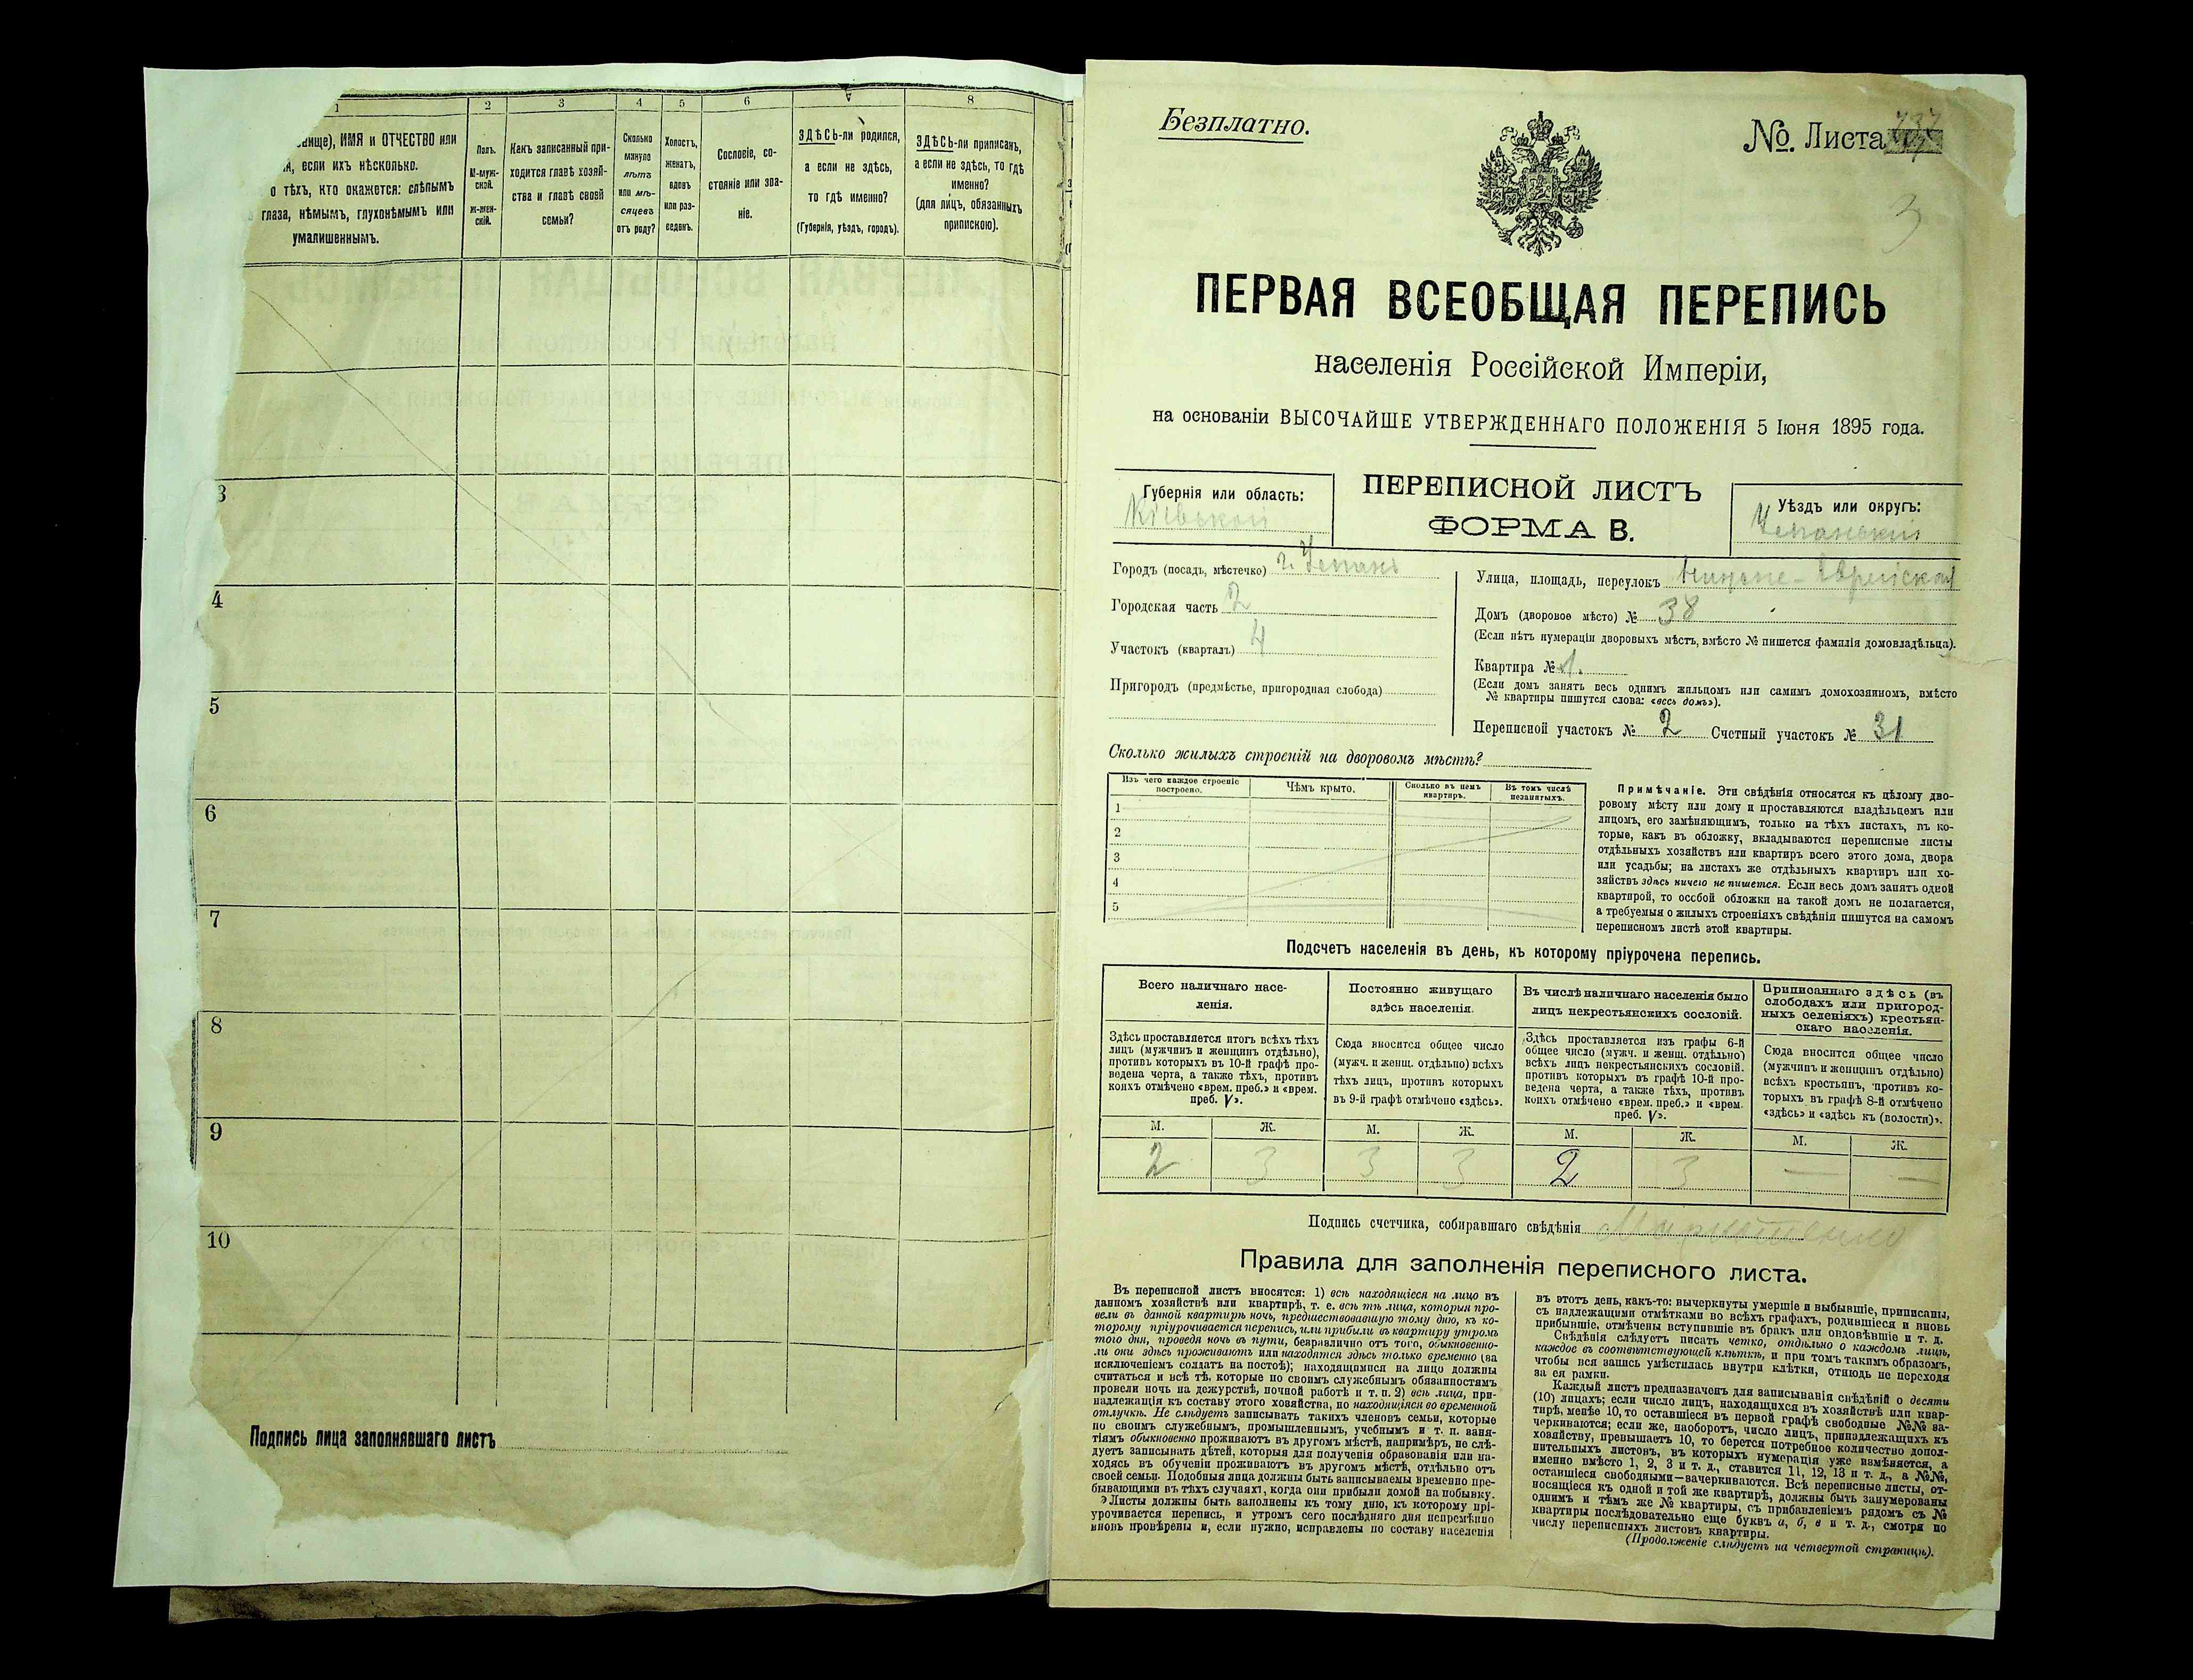 1 2 3 4 5 6 7 8
вище), ИМЯ и ОТЧЕСТВО или
если ихъ нѣсколько.
о тѣхъ, кто окажется: слѣпымъ
глаза, нѣмымъ, глухонѣмымъ или
умалишеннымъ.
Полъ.
М-муж-
ской.
Ж-жен-
скій.
Какъ записанный при-
ходится главѣ хозяй-
ства и главѣ своей
семьи?
Сколько
минуло
лѣтъ
или мѣ-
сяцевъ
отъ роду?
Холостъ,
женатъ,
вдовъ
или раз-
веденъ.
Сословіе, со-
стояніе или зва-
ніе.
ЗДѢСЬ-ли родился,
а если не здѣсь,
то гдѣ именно?
(Губернія, уѣздъ, городъ).
ЗДѢСЬ-ли приписанъ,
а если не здѣсь, то гдѣ
именно?
(для лицъ, обязанныхъ
припискою).
3
4
5
6
7
8
9
10
Подпись лица заполнявшаго листъ
Безплатно.
№. Листа 737
3
ПЕРВАЯ ВСЕОБЩАЯ ПЕРЕПИСЬ
населенія Россійской Имперіи,
на основаніи ВЫСОЧАЙШЕ УТВЕРЖДЕННАГО ПОЛОЖЕНІЯ 5 Іюня 1895 года.
Губернія или область:
Кіевской
ПЕРЕПИСНОЙ ЛИСТЪ
ФОРМА В.
Уѣздъ или округъ:
Уманскій
Городъ (посадъ, мѣстечко) г. Умань
Городская часть 2
Участокъ (кварталъ) 4
Пригородъ (предмѣстье, пригородная слобода)
Улица, площадь, переулокъ Нижне-Еврейская
Домъ (дворовое мѣсто) № 38
(Если нѣтъ нумераціи дворовыхъ мѣстъ, вмѣсто № пишется фамилія домовладѣльца).
Квартира № 1.
(Если домъ занятъ весь однимъ жильцомъ или самимъ домохозяиномъ, вмѣсто
№ квартиры пишутся слова: «весь домъ»).
Переписной участокъ № 2 Счетный участокъ № 31
Сколько жилыхъ строеній на дворовомъ мѣстѣ?
Изъ чего каждое строеніе
построено.
Чѣмъ крыто.
Сколько въ немъ
квартиръ.
Въ томъ числѣ
незанятыхъ.
1
2
3
4
5
Примѣчаніе. Эти свѣдѣнія относятся къ цѣлому дво-
ровому мѣсту или дому и проставляются владѣльцемъ или
лицомъ, его замѣняющимъ, только на тѣхъ листахъ, въ ко-
торые, какъ въ обложку, вкладываются переписные листы
отдѣльныхъ хозяйствъ или квартиръ всего этого дома, двора
или усадьбы; на листахъ же отдѣльныхъ квартиръ или хо-
зяйствъ здѣсь ничего не пишется. Если весь домъ занятъ одной
квартирой, то особой обложки на такой домъ не полагается,
а требуемыя о жилыхъ строеніяхъ свѣдѣнія пишутся на самомъ
переписномъ листѣ этой квартиры.
Подсчетъ населенія въ день, къ которому пріурочена перепись.
Всего наличнаго насе-
ленія.
Здѣсь проставляется итогъ всѣхъ тѣхъ
лицъ (мужчинъ и женщинъ отдѣльно),
противъ которыхъ въ 10-й графѣ про-
ведена черта, а также тѣхъ, противъ
коихъ отмѣчено «врем. преб.» и «врем.
преб. V».
Постоянно живущаго
здѣсь населенія.
Сюда вносится общее число
(мужч. и женщ. отдѣльно) всѣхъ
тѣхъ лицъ, противъ которыхъ
въ 9-й графѣ отмѣчено «здѣсь».
Въ числѣ наличнаго населенія было
лицъ некрестьянскихъ сословій.
Здѣсь проставляется изъ графы 6-й
общее число (мужч. и женщ. отдѣльно)
всѣхъ лицъ некрестьянскихъ сословій.
противъ которыхъ въ графѣ 10-й про-
ведена черта, а также тѣхъ, противъ
коихъ отмѣчено «врем. преб.» и «врем.
преб. V».
Приписаннаго здѣсь (въ
слободахъ или пригород-
ныхъ селеніяхъ) крестьян-
скаго населенія.
Сюда вносится общее число
(мужчинъ и женщинъ отдѣльно)
всѣхъ крестьянъ, противъ ко-
торыхъ въ графѣ 8-й отмѣчено
«здѣсь» и «здѣсь къ (волости)».
М. Ж. М. Ж. М. Ж. М. Ж.
2 3 3 3 2 3 — —
Подпись счетчика, собиравшаго свѣдѣнія
Правила для заполненія переписного листа.
Въ переписной листъ вносятся: 1) всѣ находящіеся на лицо въ
данномъ хозяйствѣ или квартирѣ, т. е. всѣ тѣ лица, которыя про-
вели въ данной квартирѣ ночь, предшествовавшую тому дню, къ ко-
торому пріурочивается перепись, или прибыли въ квартиру утромъ
того дня, проведя ночь въ пути, безразлично отъ того, обыкновенно-
ли они здѣсь проживаютъ или находятся здѣсь только временно (за
исключеніемъ солдатъ на постоѣ); находящимися на лицо должны
считаться и всѣ тѣ, которые по своимъ служебнымъ обязанностямъ
провели ночь на дежурствѣ, ночной работѣ и т. п. 2) всѣ лица, при-
надлежащія къ составу этого хозяйства, но находящіяся во временной
отлучкѣ. Не слѣдуетъ записывать такихъ членовъ семьи, которые
по своимъ служебнымъ, промышленнымъ, учебнымъ и т. п. заня-
тіямъ обыкновенно проживаютъ въ другомъ мѣстѣ, напримѣръ, не слѣ-
дуетъ записывать дѣтей, которыя для полученія образованія или на-
ходясь въ обученіи проживаютъ въ другомъ мѣстѣ, отдѣльно отъ
своей семьи. Подобныя лица должны быть записываемы временно пре-
бывающими въ тѣхъ случаяхъ, когда они прибыли домой на побывку.
Листы должны быть заполнены къ тому дню, къ которому прі-
урочивается перепись, и утромъ сего послѣдняго дня непремѣнно
вновь провѣрены и, если нужно, исправлены по составу населенія
въ этотъ день, какъ-то: вычеркнуты умершіе и выбывшіе, приписаны,
съ надлежащими отмѣтками во всѣхъ графахъ, родившіеся и вновь
прибывшіе, отмѣчены вступившіе въ бракъ или овдовѣвшіе и т. д.
Свѣдѣнія слѣдуетъ писать четко, отдѣльно о каждомъ лицѣ,
каждое въ соотвѣтствующей клѣткѣ, и при томъ такимъ образомъ,
чтобы вся запись умѣстилась внутри клѣтки, отнюдь не переходя
за ея рамки.
Каждый листъ предназначенъ для записыванія свѣдѣній о десяти
(10) лицахъ; если число лицъ, находящихся въ хозяйствѣ или квар-
тирѣ, менѣе 10, то оставшіеся въ первой графѣ свободные №№ за-
черкиваются; если же, наоборотъ, число лицъ, принадлежащихъ къ
хозяйству, превышаетъ 10, то берется потребное количество допол-
нительныхъ листовъ, въ которыхъ нумерація уже измѣняется, а
именно вмѣсто 1, 2, 3 и т. д., ставится 11, 12, 13 и т. д., а №№,
оставшіеся свободными—зачеркиваются. Всѣ переписные листы, от-
носящіеся къ одной и той же квартирѣ, должны быть занумерованы
однимъ и тѣмъ же № квартиры, съ прибавленіемъ рядомъ съ №
квартиры послѣдовательно еще буквъ а, б, в и т. д., смотря по
числу переписныхъ листовъ квартиры.
(Продолженіе слѣдуетъ на четвертой страницѣ).